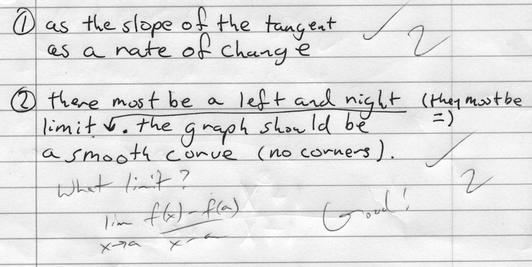 ① as the slope of the tangent ✓ 2
as a rate of change
② there must be a left and right (they must be
limit ✓. the graph should be =)
a smooth curve (no corners). ✓ 2
What limit?
lim f(x)-f(a) Good!
x→a x-a